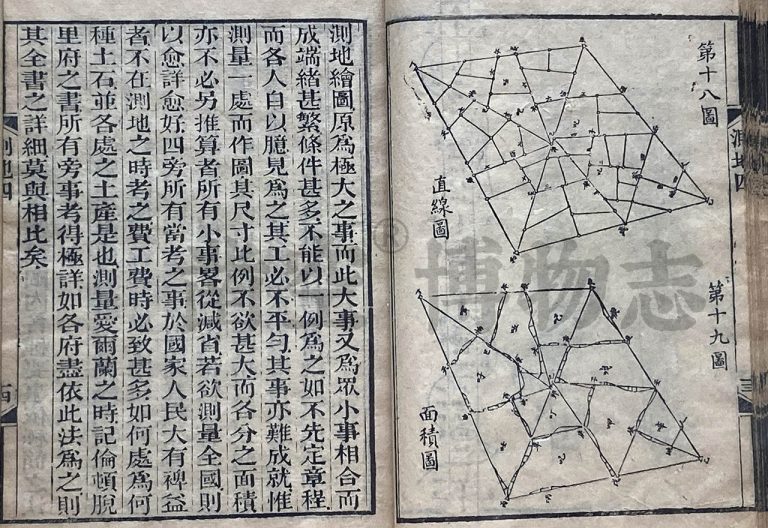 第十八圖
直線圖
第十九圖
面積圖
測地四
測地繪圖原爲極大之事而此大事又爲眾小事相合而
成端緒甚繁條件甚多不能以一例爲之如不先定章程
而各人自以臆見爲之其工必不平勻其事亦難成就惟
測量一處而作圖其尺寸比例不欲甚大而各分之面積
亦不必另推算者所有小事畧從減省若欲測量全國則
以愈詳愈好四旁所有當考之事於國家人民大有裨益
者不在測地之時考之費工費時必致甚多如何處爲何
種土石並各處之土產是也測量愛爾蘭之時記倫頓脫
里府之書所有旁事考得極詳如各府盡依此法爲之則
其全書之詳細莫與相比矣
測地四
四
博物志